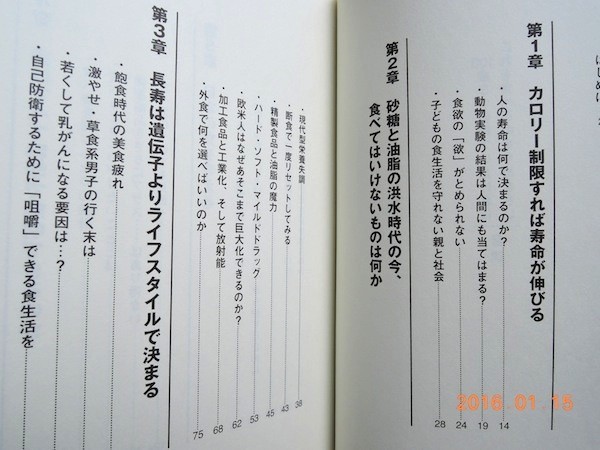 はじめに
第1章 カロリー制限すれば寿命が伸びる
・人の寿命は何で決まるのか？ 14
・動物実験の結果は人間にも当てはまる？ 19
・食欲の「欲」がとめられない 24
・子どもの食生活を守れない親と社会 28
第2章 砂糖と油脂の洪水時代の今、
食べてはいけないものは何か
・現代型栄養失調 38
・断食で一度リセットしてみる 43
・精製食品と油脂の魔力 45
・ハード・ソフト・マイルドドラッグ 53
・欧米人はなぜあそこまで巨大化できるのか？ 62
・加工食品と工業化、そして放射能 68
・外食で何を選べばいいのか 75
第3章 長寿は遺伝子よりライフスタイルで決まる
・飽食時代の美食疲れ
・激やせ・草食系男子の行く末は
・若くして乳がんになる要因は…？
・自己防衛するために「咀嚼」できる食生活を
2016.01.15